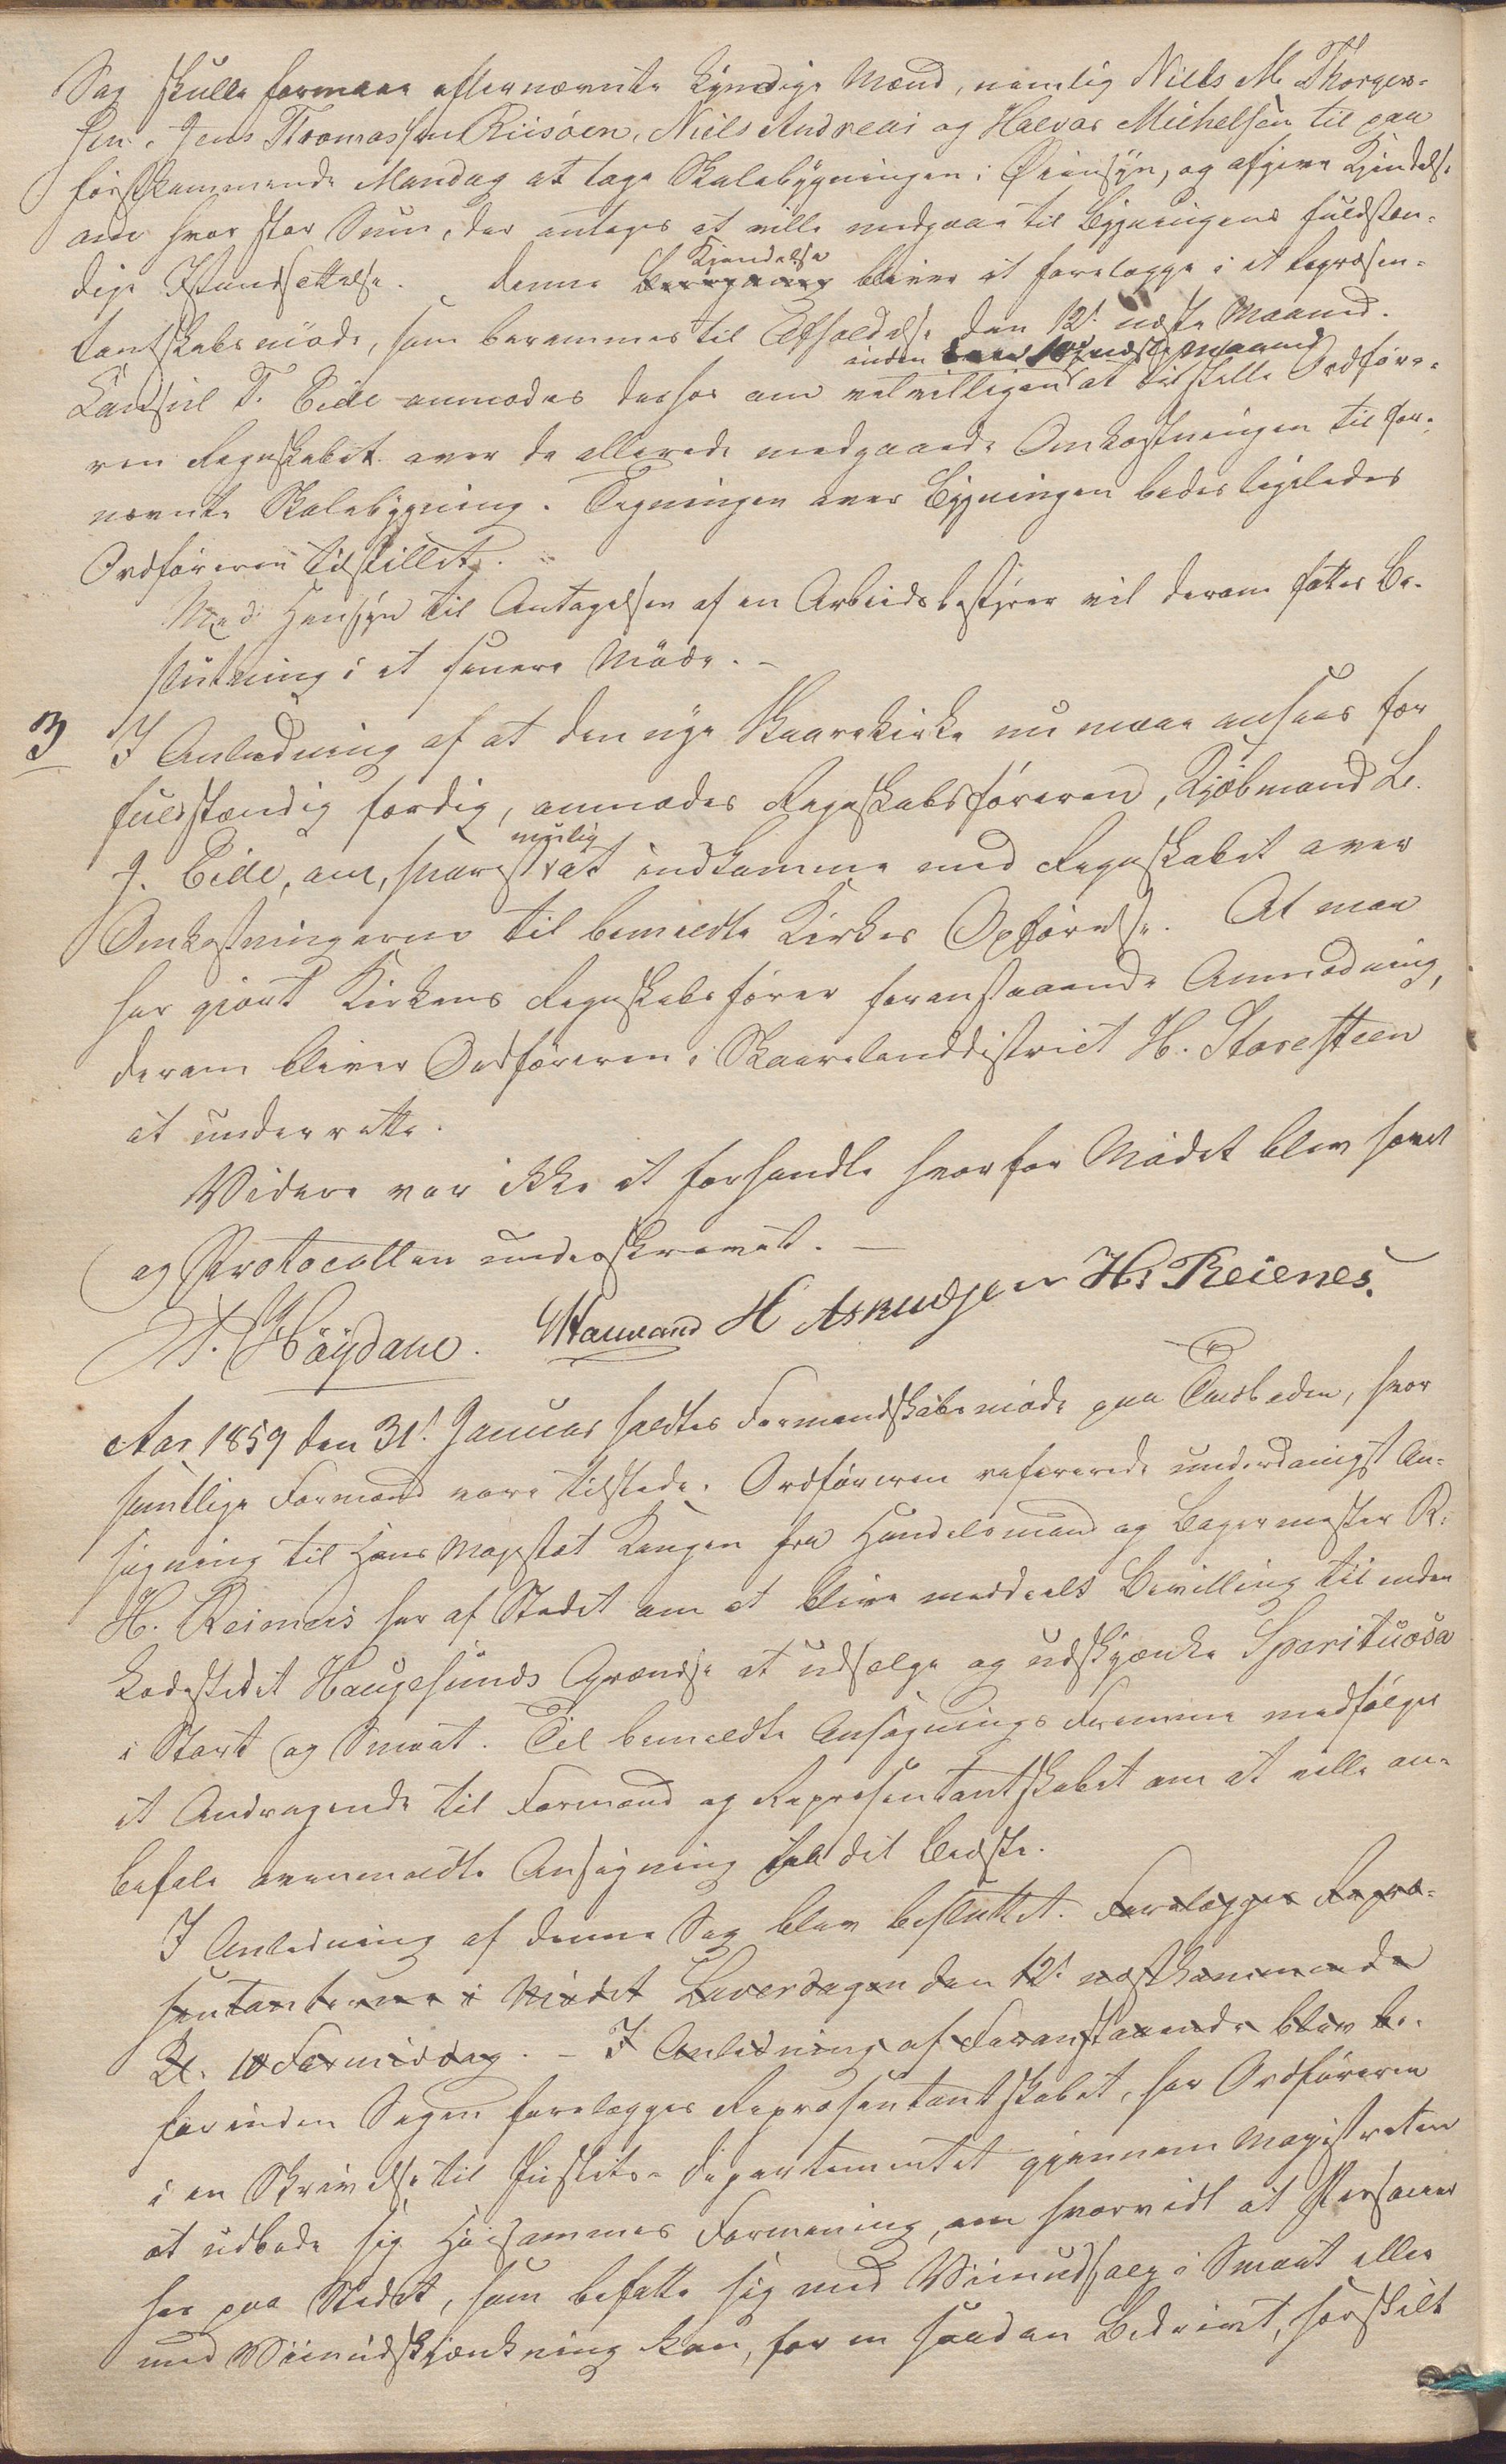 Sag skulle formaae efternævnte kyndige Mænd, nemlig Niels M. Thorger-
sen, Jens Thomassen Riisøen, Niels Andreas og Halvor Michelsen til paa
førstkommende Mandag at tage Skolebygningen i Øiensyn, og afgive Kjendelse
om hvor stor Sum, der antages at ville medgaae til Bygningens fuldstæn-
dige Istandsættelse. Denne Kjendelse bliver at forelægge i et Repræsen-
tantskabsmøde, som berammes til Afholdelse den 12te næste Maaned.
inden
Consul T. Eide anmodes derhos om velvilligen at tilstille Ordføre-
ren Regnskabet over de allerede medgaaede Omkostninger til for-
nævnte Skolebygning. Tegningen over Bygningen bedes ligeledes
Ordføreren tilstillet.
Med Hensyn til Antagelsen af en Arbeidsbestyrer vil derom fattes Be-
slutning i et senere Møde. -
3 I Anledning af at den nye Skaarekirke nu maae ansees for
fuldstændig færdig, anmodes Regnskabsføreren, Kjøbmand L.
J. Eide, om, snarest mulig at indkomme med Regnskabet over
Omkostningerne til bemeldte Kirkes Opførelse. At man
har gjort Kirkens Regnskabsfører foranstaaende Anmodning,
derom bliver Ordføreren i Skaarelanddistrict H. Storesteen
at underrette.
Videre var ikke at forhandle hvorfor Mødet blev hævet
og Protocollen underskrevet. -
Høydahl. H Asmudsen Hs Reienes.
Aar 1859 den 31te Januar holdtes Formandskabsmøde paa, hvor
samtlige Formænd vare tilstede. Ordføreren refererede underdanigst An-
søgning til Hans Majestæt Kongen fra Handelsmand og Bagermester R.
H. Reimers her af Stedet om at blive meddeelt Bevilling til inden
Ladestedet Haugesunds Grændse at udsælge og udskjænke Sprituosa
i Stort og Smaat. Til bemeldte Ansøgnings Fremme medfølger
et Andragende til Formænd og Repræsentantskabet om at ville an-
befale ovenmeldte Ansøgning til det Bedste.
I Anledning af denne Sag blev besluttet. Forelægges Repræ-
sentanterne i Mødet Løverdagen den 12te næstkommende
Kl. 10 Formiddag. - I Anledning af Foranstaaende blev be-
forinden Sagen forelægges Repræsentantskabet, har Ordføreren
i en Skrivelse til Justits-Departementet gjennem Magistraten
at udbede sig Høisammes Formening, om hvorvidt at Personer
her paa Stedet, som befatte sig med Viinudsalg i Smaat eller
med Viinudskjænkning kan, for en saadan Bedrivt, særskilt